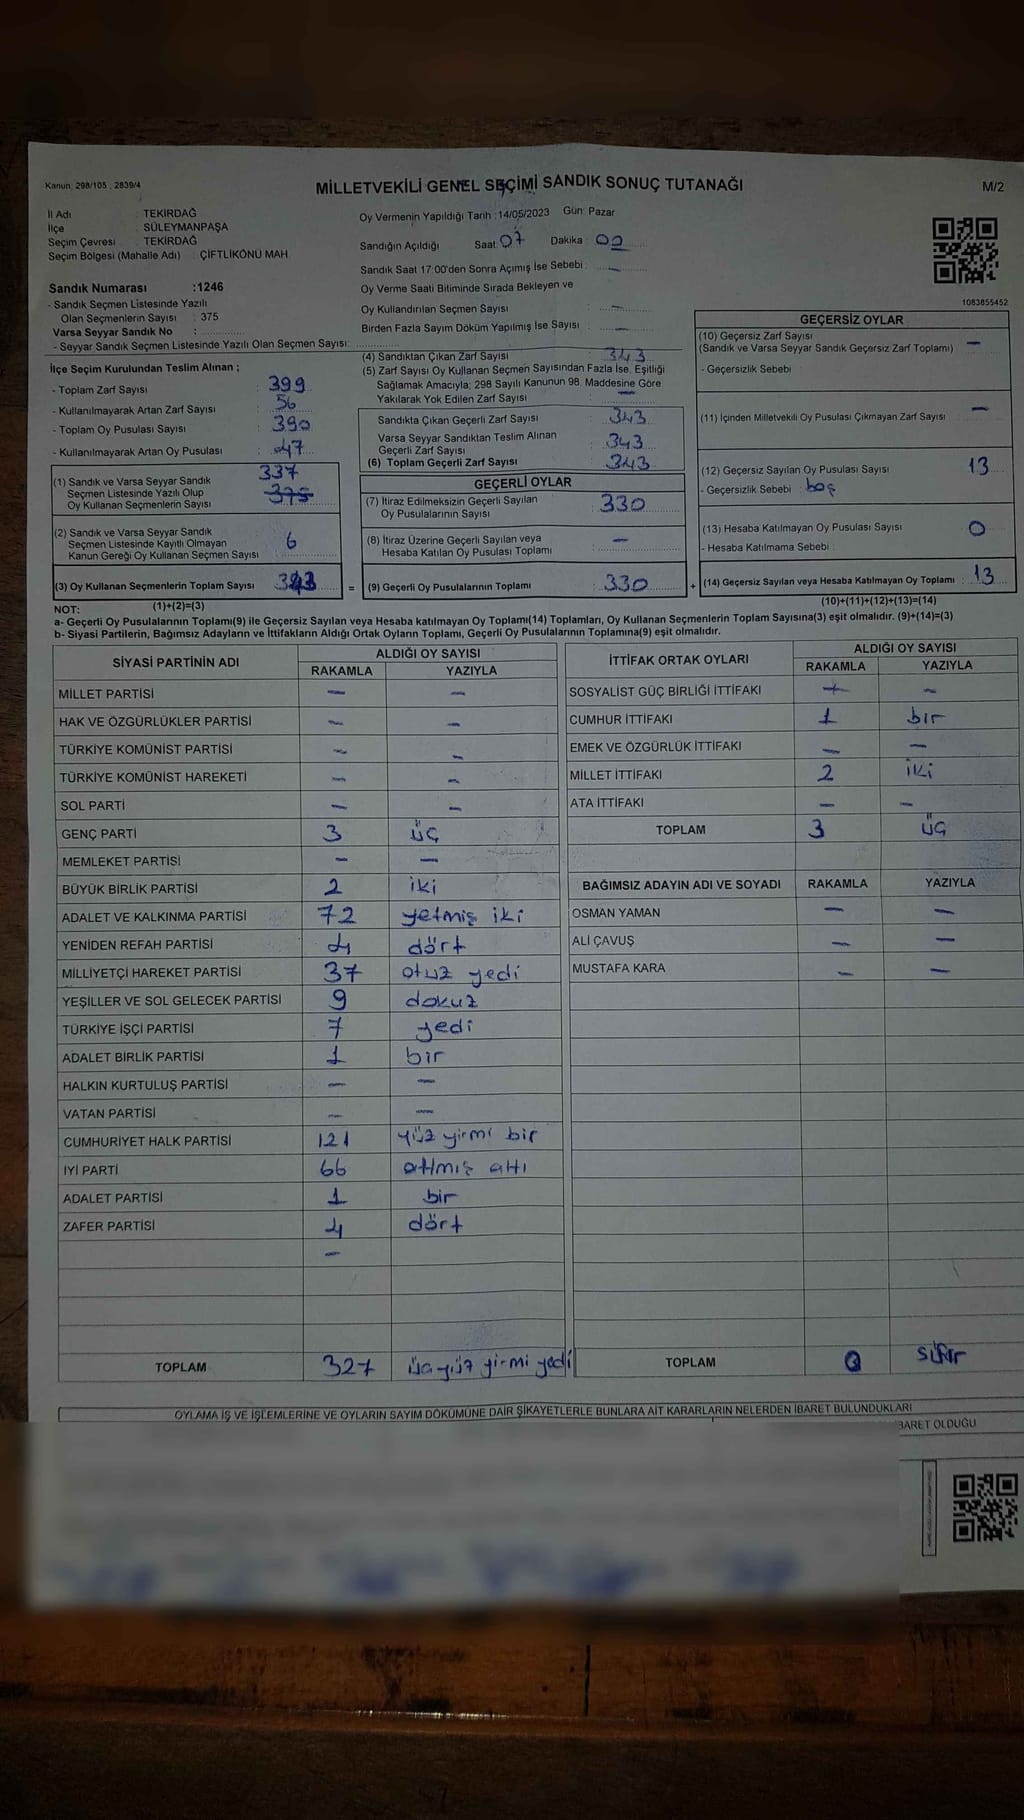 Kanun. 298/105 , 2839/4
MİLLETVEKİLİ GENEL SEÇİMİ SANDIK SONUÇ TUTANAĞI
M/2
İl Adı : TEKİRDAĞ
İlçe : SÜLEYMANPAŞA
Seçim Çevresi : TEKİRDAĞ
Seçim Bölgesi (Mahalle Adı) : ÇİFTLİKÖNÜ MAH.
Sandık Numarası :1246
- Sandık Seçmen Listesinde Yazılı
Olan Seçmenlerin Sayısı : 375
Varsa Seyyar Sandık No :
- Seyyar Sandık Seçmen Listesinde Yazılı Olan Seçmen Sayısı:
Oy Vermenin Yapıldığı Tarih :14/05/2023 Gün: Pazar
Sandığın Açıldığı Saat 07 Dakika 00
Sandık Saat 17:00'den Sonra Açımış İse Sebebi : —
Oy Verme Saati Bitiminde Sırada Bekleyen ve
Oy Kullandırılan Seçmen Sayısı : —
Birden Fazla Sayım Döküm Yapılmış İse Sayısı : —
1083855452
İlçe Seçim Kurulundan Teslim Alınan ;
- Toplam Zarf Sayısı : 399
- Kullanılmayarak Artan Zarf Sayısı : 56
- Toplam Oy Pusulası Sayısı : 390
- Kullanılmayarak Artan Oy Pusulası : 47
(1) Sandık ve Varsa Seyyar Sandık
Seçmen Listesinde Yazılı Olup
Oy Kullanan Seçmenlerin Sayısı 337 375
(2) Sandık ve Varsa Seyyar Sandık
Seçmen Listesinde Kayıtlı Olmayan
Kanun Gereği Oy Kullanan Seçmen Sayısı 6
(3) Oy Kullanan Seçmenlerin Toplam Sayısı : 343 =
(1)+(2)=(3)
(4) Sandıktan Çıkan Zarf Sayısı : 343
(5) Zarf Sayısı Oy Kullanan Seçmen Sayısından Fazla İse, Eşitliği
Sağlamak Amacıyla; 298 Sayılı Kanunun 98. Maddesine Göre
Yakılarak Yok Edilen Zarf Sayısı : —
Sandıkta Çıkan Geçerli Zarf Sayısı : 343
Varsa Seyyar Sandıktan Teslim Alınan
Geçerli Zarf Sayısı : 343
(6) Toplam Geçerli Zarf Sayısı : 343
GEÇERLİ OYLAR
(7) İtiraz Edilmeksizin Geçerli Sayılan
Oy Pusulalarının Sayısı : 330
(8) İtiraz Üzerine Geçerli Sayılan veya
Hesaba Katılan Oy Pusulası Toplamı : —
(9) Geçerli Oy Pusulalarının Toplamı : 330 +
GEÇERSİZ OYLAR
(10) Geçersiz Zarf Sayısı
(Sandık ve Varsa Seyyar Sandık Geçersiz Zarf Toplamı) —
- Geçersizlik Sebebi :
(11) İçinden Milletvekili Oy Pusulası Çıkmayan Zarf Sayısı —
(12) Geçersiz Sayılan Oy Pusulası Sayısı 13
- Geçersizlik Sebebi : boş
(13) Hesaba Katılmayan Oy Pusulası Sayısı 0
- Hesaba Katılmama Sebebi :
(14) Geçersiz Sayılan veya Hesaba Katılmayan Oy Toplamı : 13
(10)+(11)+(12)+(13)=(14)
NOT:
a- Geçerli Oy Pusulalarının Toplamı(9) ile Geçersiz Sayılan veya Hesaba katılmayan Oy Toplamı(14) Toplamları, Oy Kullanan Seçmenlerin Toplam Sayısına(3) eşit olmalıdır. (9)+(14)=(3)
b- Siyasi Partilerin, Bağımsız Adayların ve İttifakların Aldığı Ortak Oyların Toplamı, Geçerli Oy Pusulalarının Toplamına(9) eşit olmalıdır.
SİYASİ PARTİNİN ADI ALDIĞI OY SAYISI
RAKAMLA YAZIYLA
MİLLET PARTİSİ — —
HAK VE ÖZGÜRLÜKLER PARTİSİ — —
TÜRKİYE KOMÜNİST PARTİSİ — —
TÜRKİYE KOMÜNİST HAREKETİ — —
SOL PARTİ — —
GENÇ PARTİ 3 üç
MEMLEKET PARTİSİ — —
BÜYÜK BİRLİK PARTİSİ 2 iki
ADALET VE KALKINMA PARTİSİ 72 yetmiş iki
YENİDEN REFAH PARTİSİ 4 dört
MİLLİYETÇİ HAREKET PARTİSİ 37 otuz yedi
YEŞİLLER VE SOL GELECEK PARTİSİ 9 dokuz
TÜRKİYE İŞÇİ PARTİSİ 7 yedi
ADALET BİRLİK PARTİSİ 1 bir
HALKIN KURTULUŞ PARTİSİ — —
VATAN PARTİSİ — —
CUMHURİYET HALK PARTİSİ 121 yüz yirmi bir
İYİ PARTİ 66 atlmış altı
ADALET PARTİSİ 1 bir
ZAFER PARTİSİ 4 dört
—
TOPLAM 327 üçyüz yirmi yedi
İTTİFAK ORTAK OYLARI ALDIĞI OY SAYISI
RAKAMLA YAZIYLA
SOSYALİST GÜÇ BİRLİĞİ İTTİFAKI — —
CUMHUR İTTİFAKI 1 bir
EMEK VE ÖZGÜRLÜK İTTİFAKI — —
MİLLET İTTİFAKI 2 iki
ATA İTTİFAKI — —
TOPLAM 3 üç
BAĞIMSIZ ADAYIN ADI VE SOYADI RAKAMLA YAZIYLA
OSMAN YAMAN — —
ALİ ÇAVUŞ — —
MUSTAFA KARA — —
TOPLAM 0 sıfır
OYLAMA İŞ VE İŞLEMLERİNE VE OYLARIN SAYIM DÖKÜMÜNE DAİR ŞİKAYETLERLE BUNLARA AİT KARARLARIN NELERDEN İBARET BULUNDUKLARI
BARET OLDUĞU